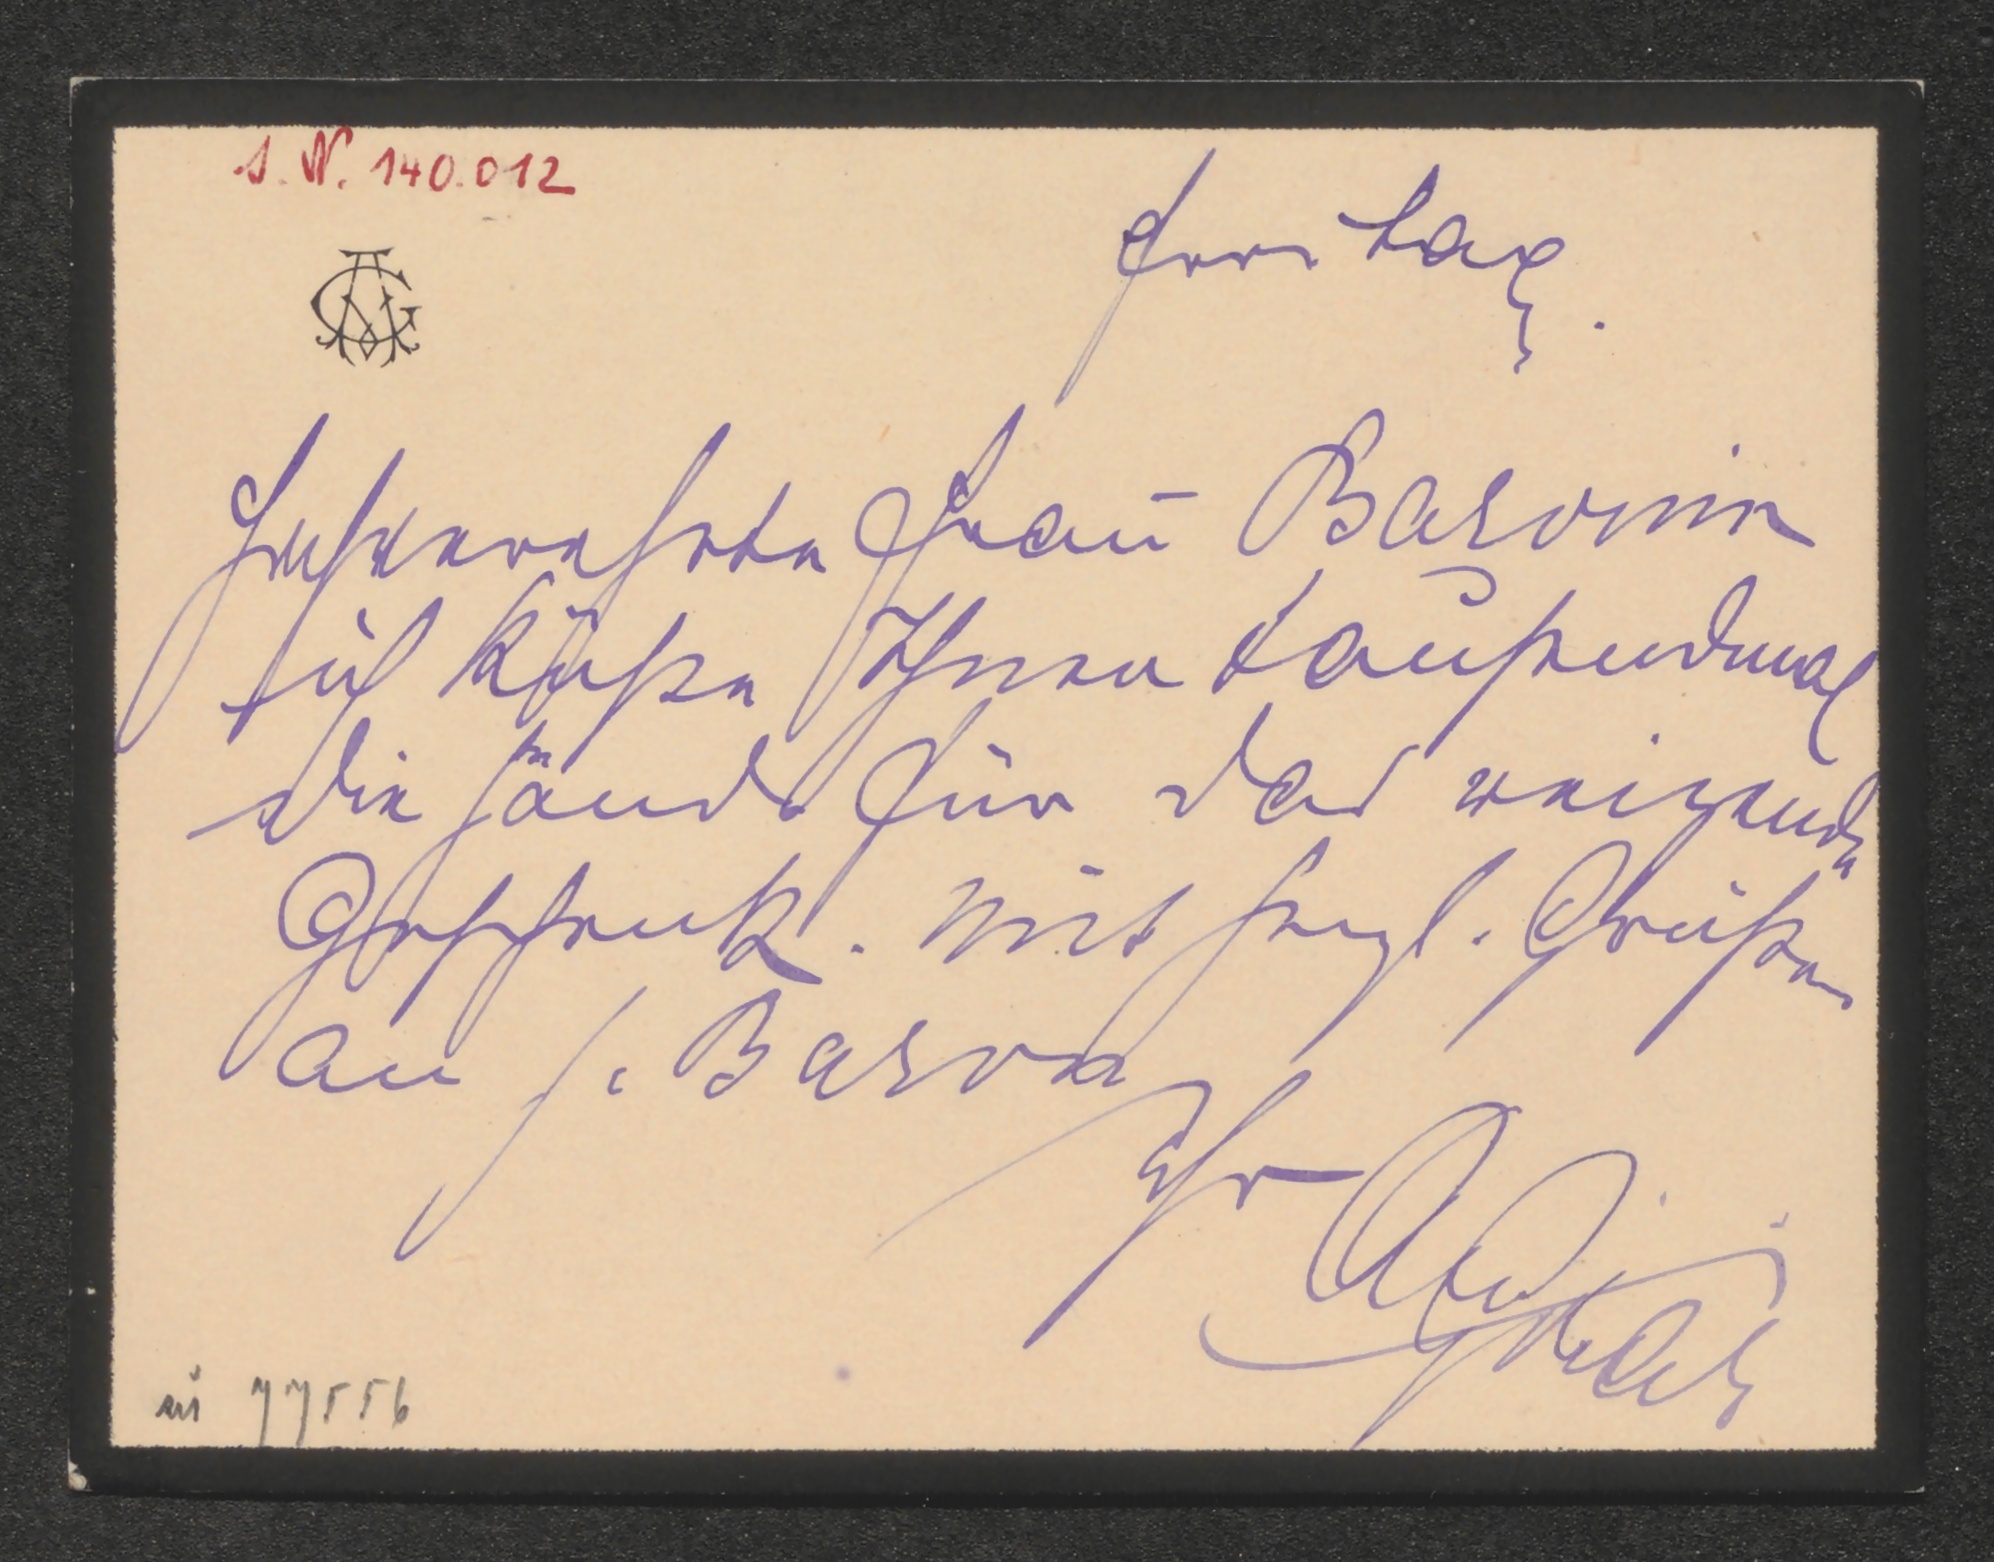 I. N. 140.012
AG
Freitag.
Hochverehrte Frau Baronin
ich küße Ihnen taußendmal
die Hände für das reizende
Geschenk. Mit herzl. Grüßen
an H. Baron
Ihr
zu 77556